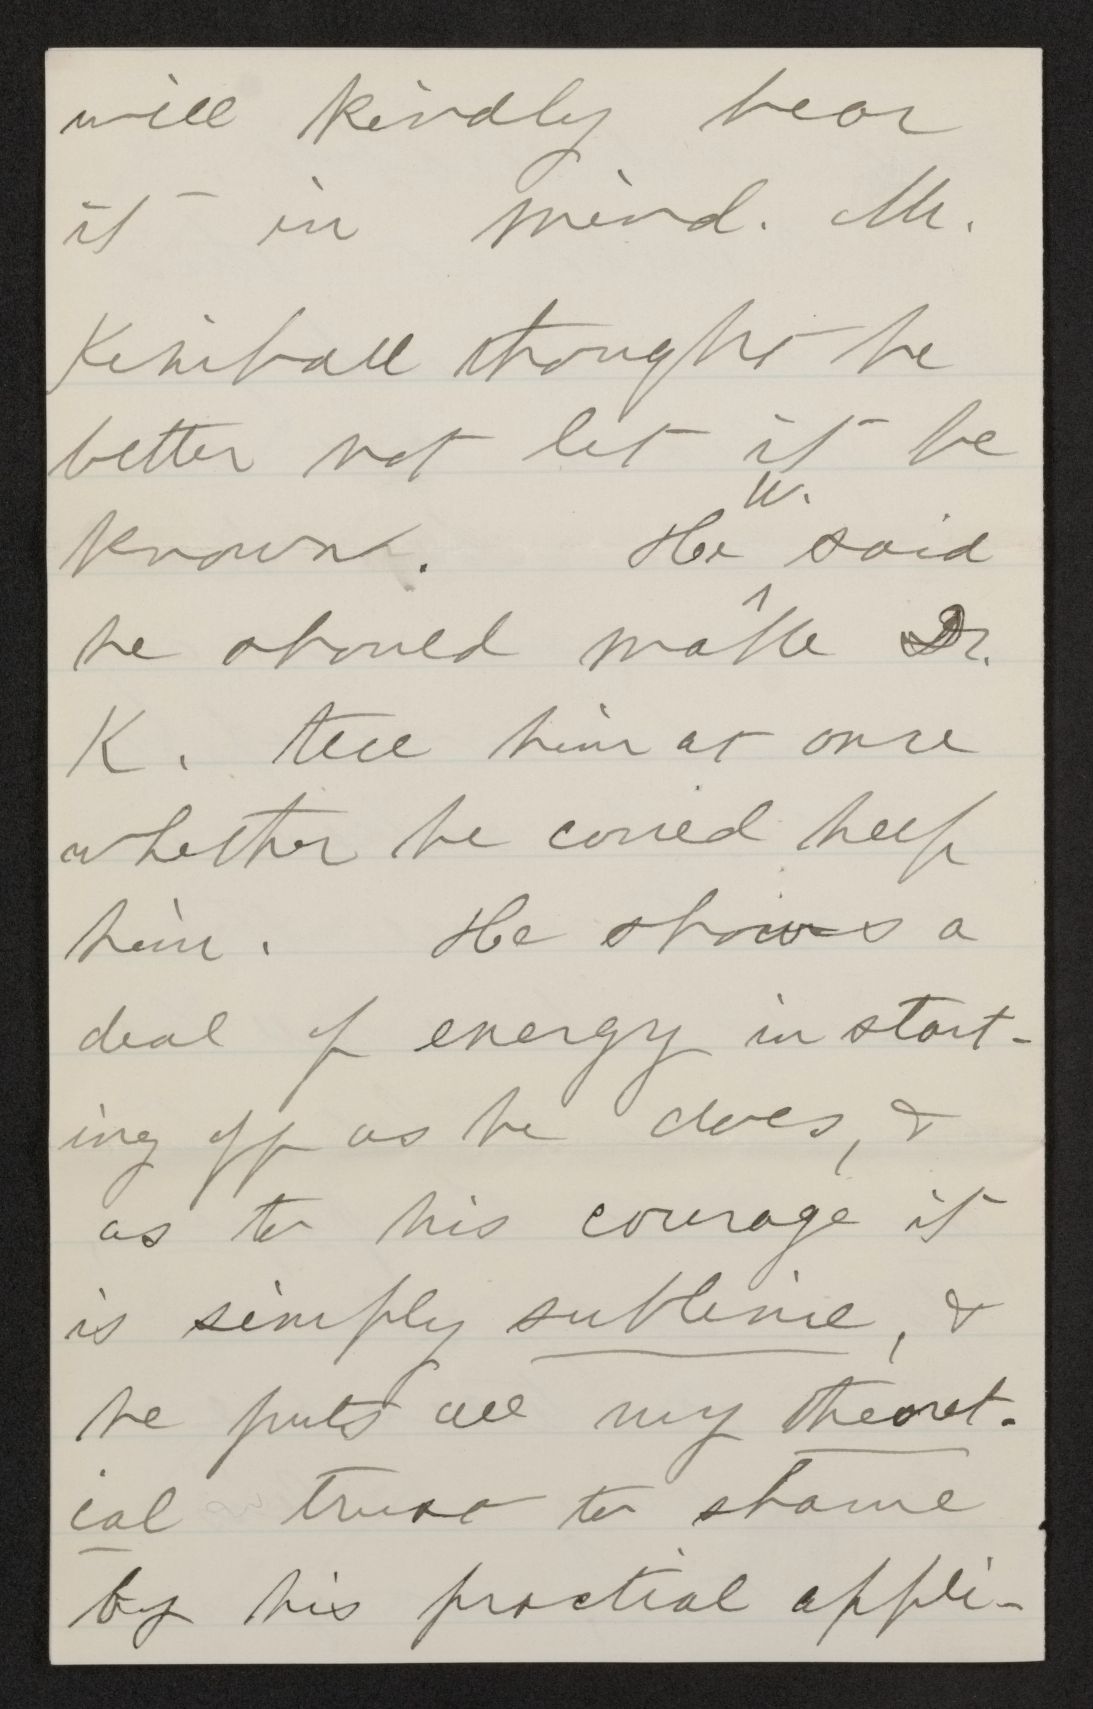 will kindly bear
it in mind. Mr.
Kimball thought he
better not let it be
known. He W. said
he should make Dr.
K. tell him at once
whether he could help
him. He shows a
deal of energy in start-
ing off as he does, &
as to his courage it
is simply sublime, &
he puts all my theoret-
ical trust to shame
by his practial appli-